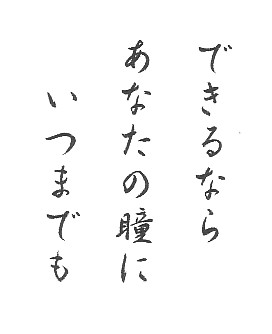 できるなら
あなたの瞳に
いつまでも